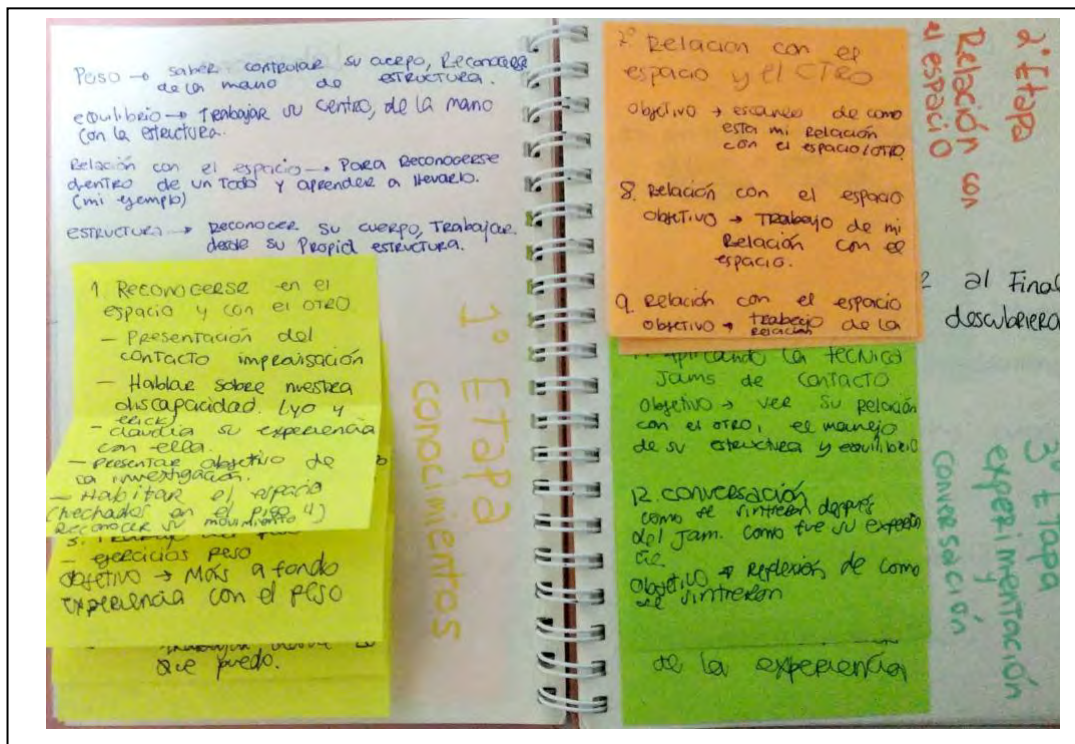 Peso → saber controlar su cuerpo, Reconocerse
de la mano de estructura.
equilibrio → Trabajar su centro, de la mano
con la estructura.
Relación con el espacio → Para Reconocerse
dentro de un Todo y aprender a llevarlo.
(mi ejemplo)
estructura → Reconocer su cuerpo, Trabajar
desde su Propia estructura.
1. Reconocerse en el
espacio y con el otro
- Presentación del
contacto improvisación
- Hablar sobre nuestra
discapacidad. (yo y
erick)
- claudia su experiencia
con ella.
- Presentar objetivo de
la investigación.
- Habitar el espacio
(hechados en el piso 4)
Reconocer su movimiento
- ejercicios peso
objetivo → Más a fondo
experiencia con el peso
que puedo.
1º Etapa
conocimientos
7º Relación con el
espacio y el otro
objetivo → escaneo de como
esta mi Relación
con el espacio/otro.
8. Relación con el espacio
objetivo → Trabajo de mi
Relación con el
espacio.
9. Relación con el espacio
objetivo → trabajo de la
relación
aplicando la tecnica
Jams de contacto
objetivo → ver su relación
con el otro, el manejo
de su estructura y equilibrio
12. conversación
como se sintieron después
del Jam. Como fue su experien
cia.
objetivo → Reflexión de como
se sintieron
de la experiencia
2º Etapa
Relación con
el espacio
al Final
descubriera
3º Etapa
experimentación
y
conversación